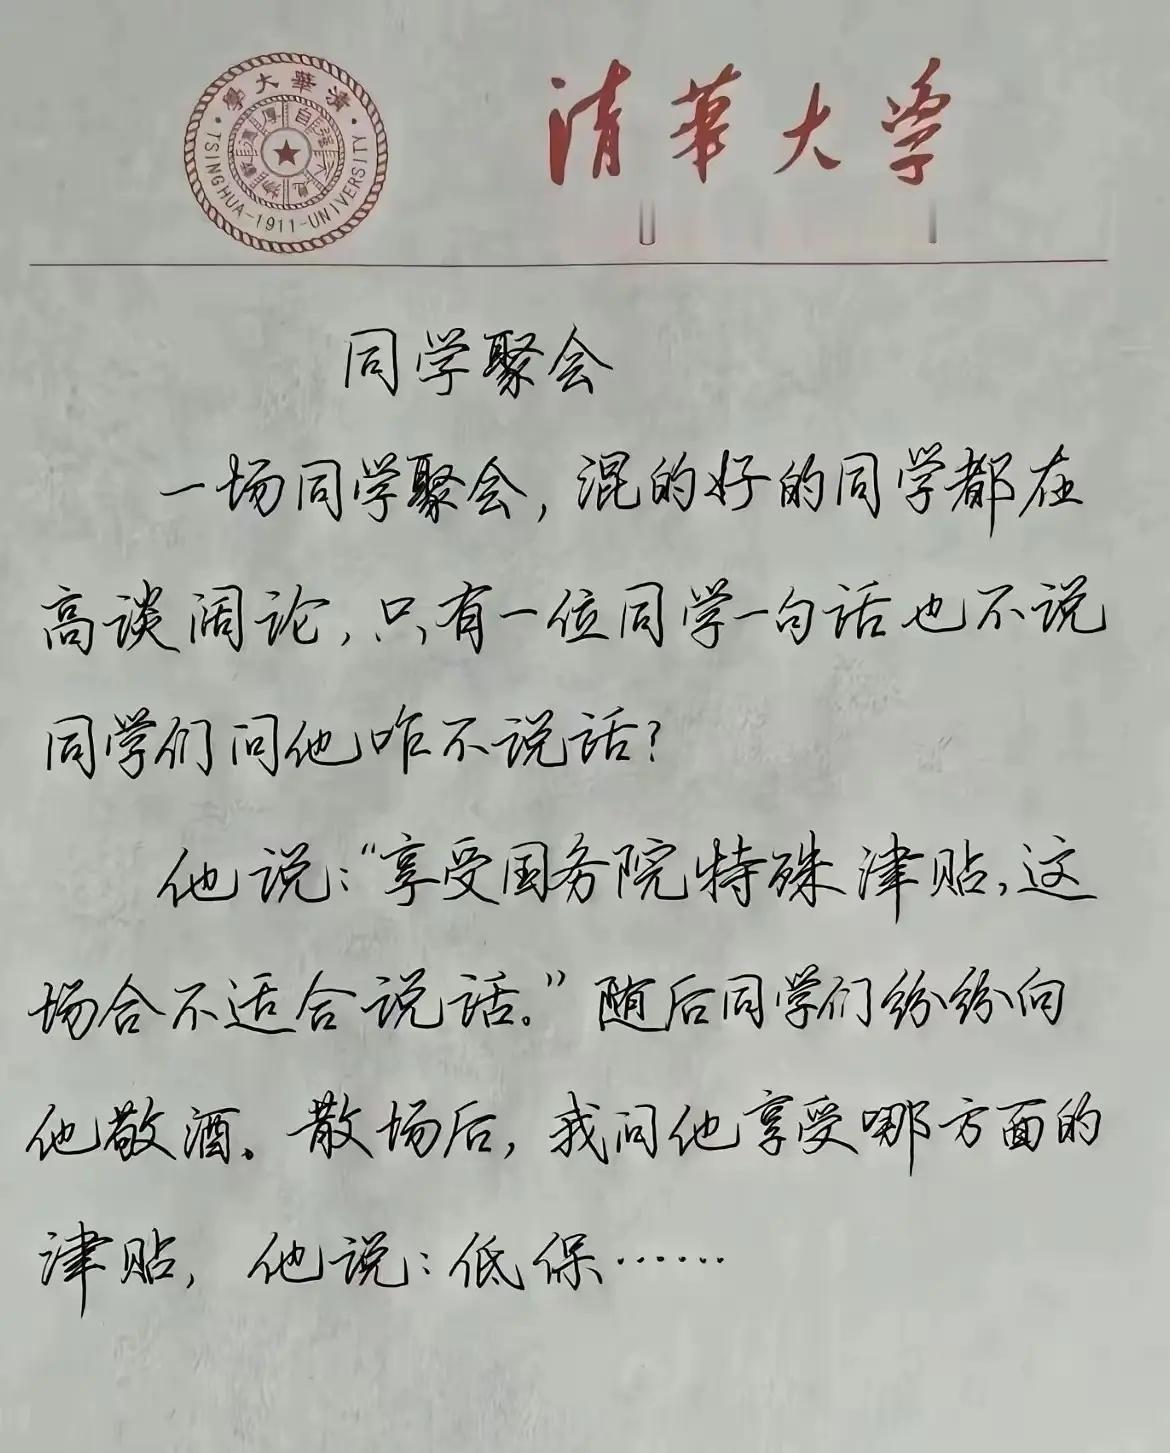 清華大学
清華大學
自强不息
厚德載物
TSINGHUA-1911-UNIVERSITY
同学聚会
一场同学聚会，混的好的同学都在
高谈阔论，只有一位同学一句话也不说
同学们问他咋不说话？
他说：“享受国务院特殊津贴，这
场合不适合说话。”随后同学们纷纷向
他敬酒。散场后，我问他享受哪方面的
津贴，他说：低保……